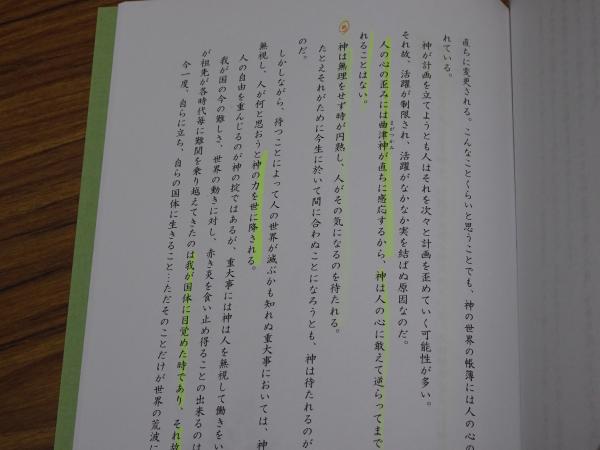 直ちに変更される。こんなことくらいと思うことでも、神の世界の帳簿には人の心の
れている。
神が計画を立てようとも人はそれを次々と計画を歪めていく可能性が多い。
それ故、活躍が制限され、活躍がなかなか実を結ばぬ原因なのだ。
人の心の歪みには曲津神が直ちに感応するから、神は人の心に敢えて逆らってまで
れることはない。
神は無理をせず時が円熟し、人がその気になるのを待たれる。
たとえそれがために今生に於いて間に合わぬことになろうとも、神は待たれるのが
のだ。
しかしながら、待つことによって人の世界が滅ぶかも知れぬ重大事においては、神
無視し、人が何と思おうと神の力を世に降される。
人の自由を重んじるのが神の掟ではあるが、重大事には神は人を無視して働きをい
我が国の今の難しさ、世界の動きに対し、赤き炎を食い止め得ることの出来るのは
が祖先が各時代毎に難関を乗り越えてきたのは我が国体に目覚めた時であり、それ故
今一度、自らに立ち、自らの国体に生きること…ただそのことだけが世界の荒波に